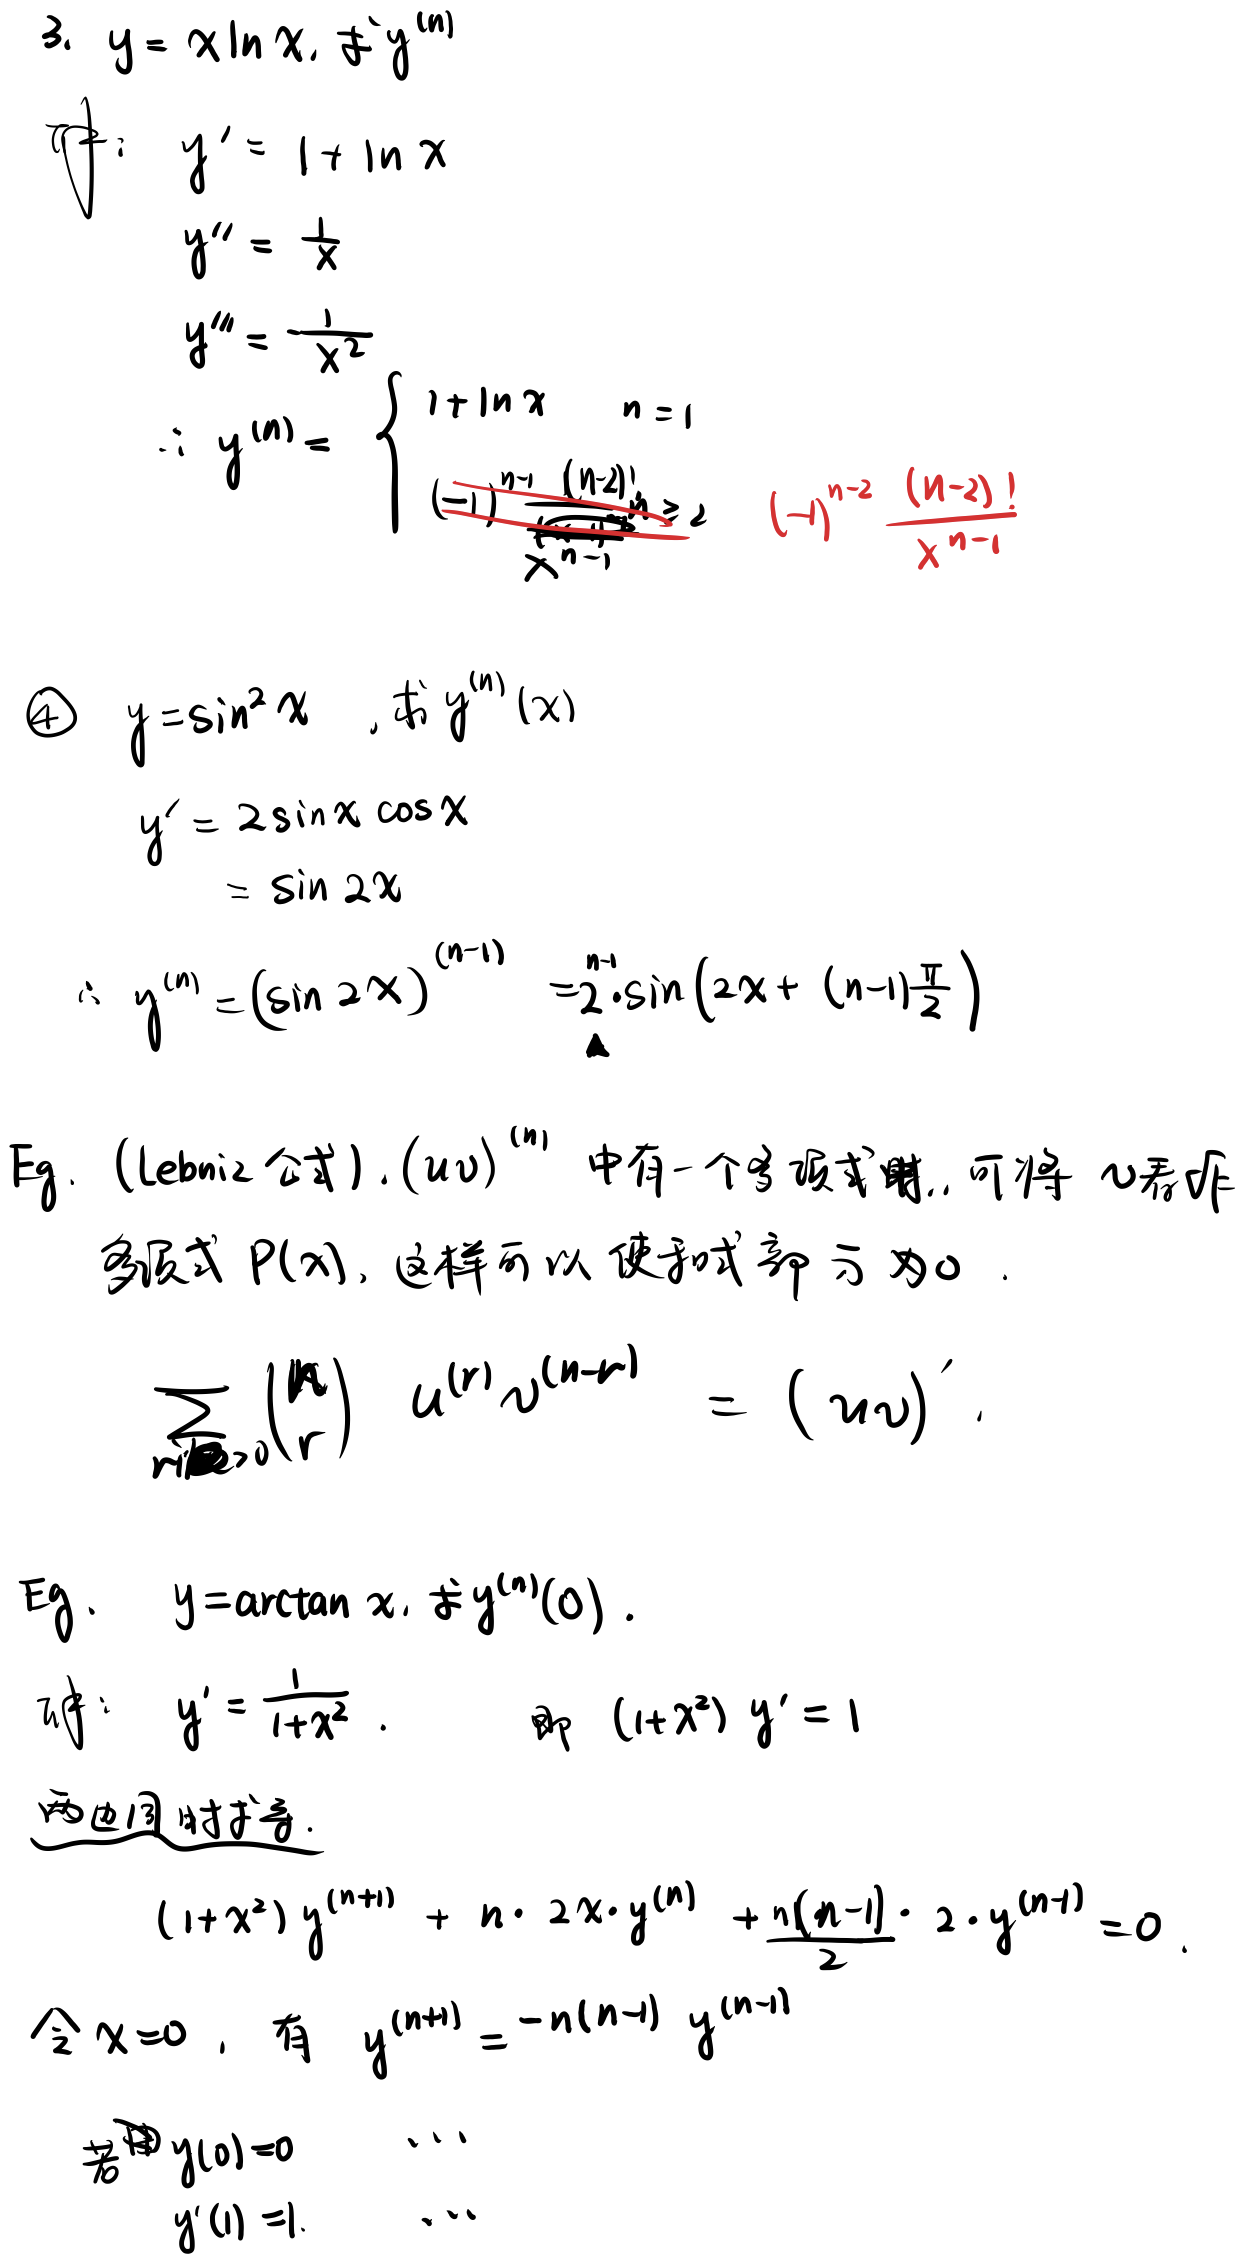 3. y = x ln x. 求 y^(n)
解: y' = 1 + ln x
y'' = 1/x
y''' = -1/x^2
∴ y^(n) = { 1 + ln x n = 1
(-1)^(n-1) (n-2)!/x^(n-1) n ≥ 2 (-1)^(n-2) (n-2)!/x^(n-1)
④ y = sin^2 x , 求 y^(n) (x)
y' = 2 sin x cos x
= sin 2x
∴ y^(n) = (sin 2x)^(n-1) = 2^(n-1) · sin(2x + (n-1)π/2)
Eg. (Lebniz 公式). (uv)^(n) 中有一个多项式时,. 可将 v看作
多项式 P(x), 这样可以使和式部分为0 .
∑ r>0 (n r) u^(r) v^(n-r) = (uv)' .
Eg. y = arctan x. 求 y^(n)(0) .
解: y' = 1/(1+x^2) . 即 (1+x^2) y' = 1
两边同时求导.
(1+x^2) y^(n+1) + n · 2x · y^(n) + n(n-1)/2 · 2 · y^(n-1) = 0 .
令 x = 0 , 有 y^(n+1) = -n(n-1) y^(n-1)
若 y(0) = 0 ...
y'(1) = 1. ...